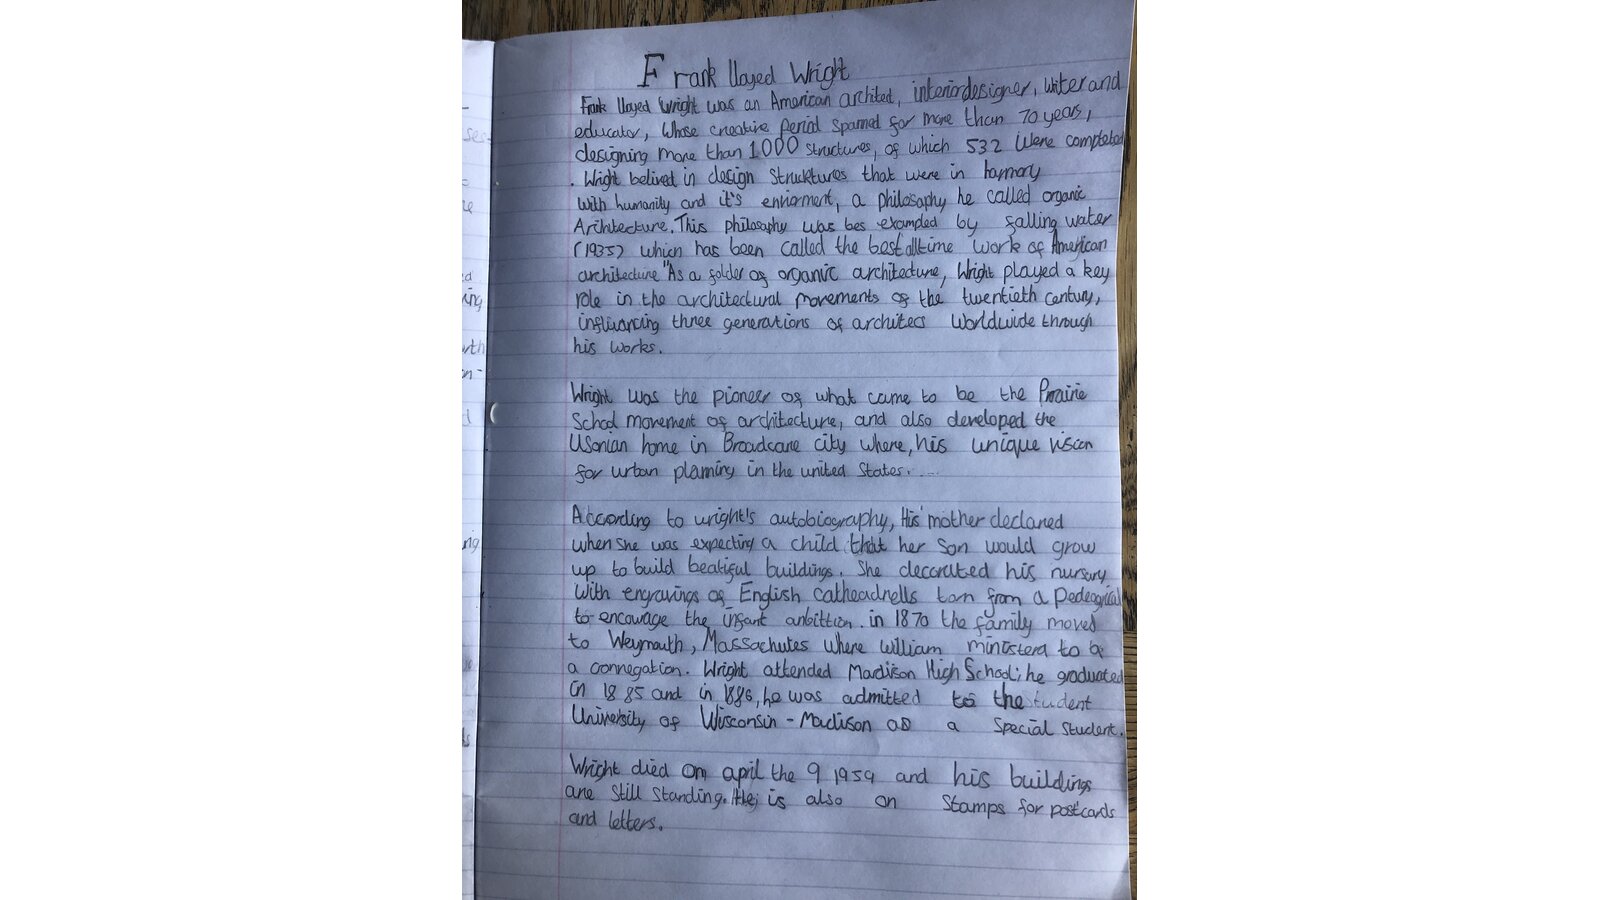 Frank lloyed Wright
Frank lloyed Wright was an American architect, interiordesigner, writer and
educator, whose creative period spanned for more than 70 years,
designing more than 1000 structures, of which 532 were completed
. Wright belived in design struktures that were in harmony
with humanity and it's enviorment, a philosophy he called organic
Architecture. This philosophy was bes exampled by falling water
(1935) which has been called the best alltime work of American
architecture "As a folder of organic architecture, Wright played a key
role in the architectural movements of the twentieth century,
influancing three generations of architecs worldwide through
his works.
Wright was the pioneer of what came to be the Prairie
School movement of architecture, and also developed the
Usonian home in Broadcare city where, his unique vision
for urban planning in the united States.
According to wright's autobiography, His mother declared
when she was expecting a child that her son would grow
up to build beatiful buildings. She decorated his nursery
with engravings of English catheadrells torn from a
to encourage the infant anbittion. in 1870 the family moved
to Weymouth, Massachutes where william ministera to be
a connegation. Wright attended Madison High School; he graduated
in 1885 and in 1886, he was admitted to the tudent
University of Wisconsin - Madison as a special student.
Wright died on april the 9 1959 and his buildings
are still standing. He is also on stamps for postcards
and letters.